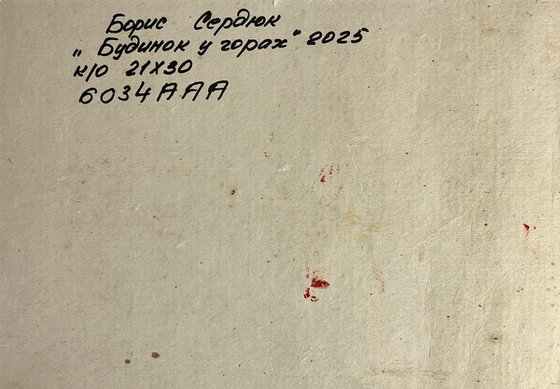 Борис Сердюк
„Будинок у горах" 2025
к/о 21х30
6034ААА